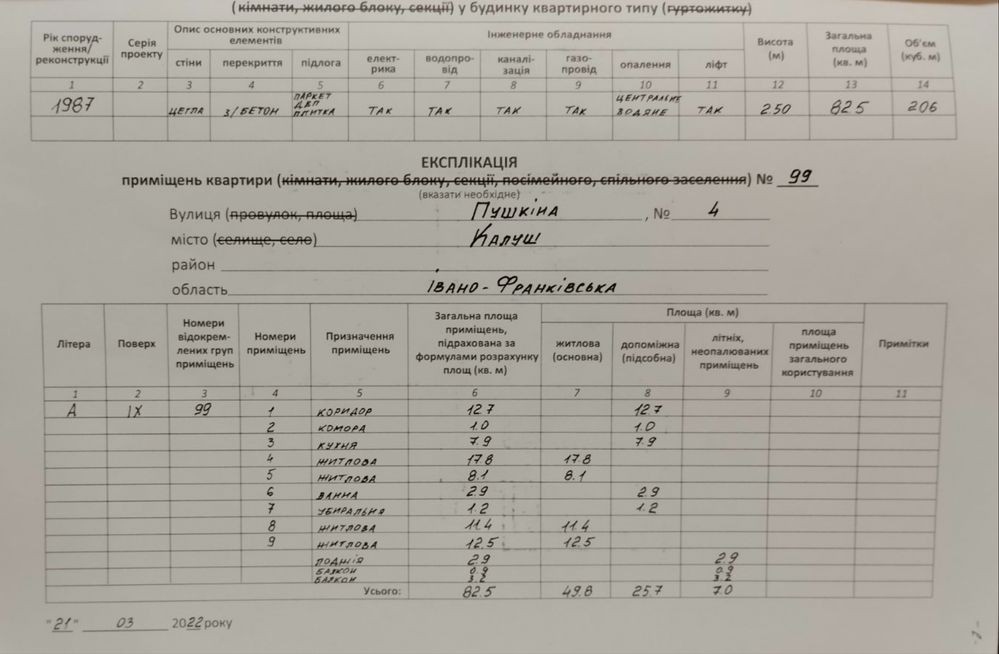 (кімнати, жилого блоку, секції) у будинку квартирного типу (гуртожитку)
Рік споруд-ження/реконструкції Серія проекту Опис основних конструктивних елементів Інженерне обладнання Висота (м) Загальна площа (кв. м) Об'єм (куб. м)
стіни перекриття підлога елект-рика водопро-від каналі-зація газо-провід опалення ліфт
1 2 3 4 5 6 7 8 9 10 11 12 13 14
1987 ЦЕГЛА З/БЕТОН ПАРКЕТ ДВП ПЛИТКА ТАК ТАК ТАК ТАК ЦЕНТРАЛЬНЕ ВОДЯНЕ ТАК 2.50 82.5 206
ЕКСПЛІКАЦІЯ
приміщень квартири (кімнати, жилого блоку, секції, посімейного, спільного заселення) № 99
(вказати необхідне)
Вулиця (провулок, площа) Пушкіна, № 4
місто (селище, село) Калуш
район
область Івано-Франківська
Літера Поверх Номери відокрем-лених груп приміщень Номери приміщень Призначення приміщень Загальна площа приміщень, підрахована за формулами розрахунку площ (кв. м) Площа (кв. м) Примітки
житлова (основна) допоміжна (підсобна) літніх, неопалюваних приміщень площа приміщень загального користування
1 2 3 4 5 6 7 8 9 10 11
А ІХ 99 1 КОРИДОР 12.7 12.7
2 КОМОРА 1.0 1.0
3 КУХНЯ 7.9 7.9
4 ЖИТЛОВА 17.8 17.8
5 ЖИТЛОВА 8.1 8.1
6 ВАННА 2.9 2.9
7 УБИРАЛЬНЯ 1.2 1.2
8 ЖИТЛОВА 11.4 11.4
9 ЖИТЛОВА 12.5 12.5
ЛОДЖІЯ 2.9 2.9
БАЛКОН 0.9 0.9
БАЛКОН 3.2 3.2
Усього: 82.5 49.8 25.7 7.0
"21" 03 2022 року